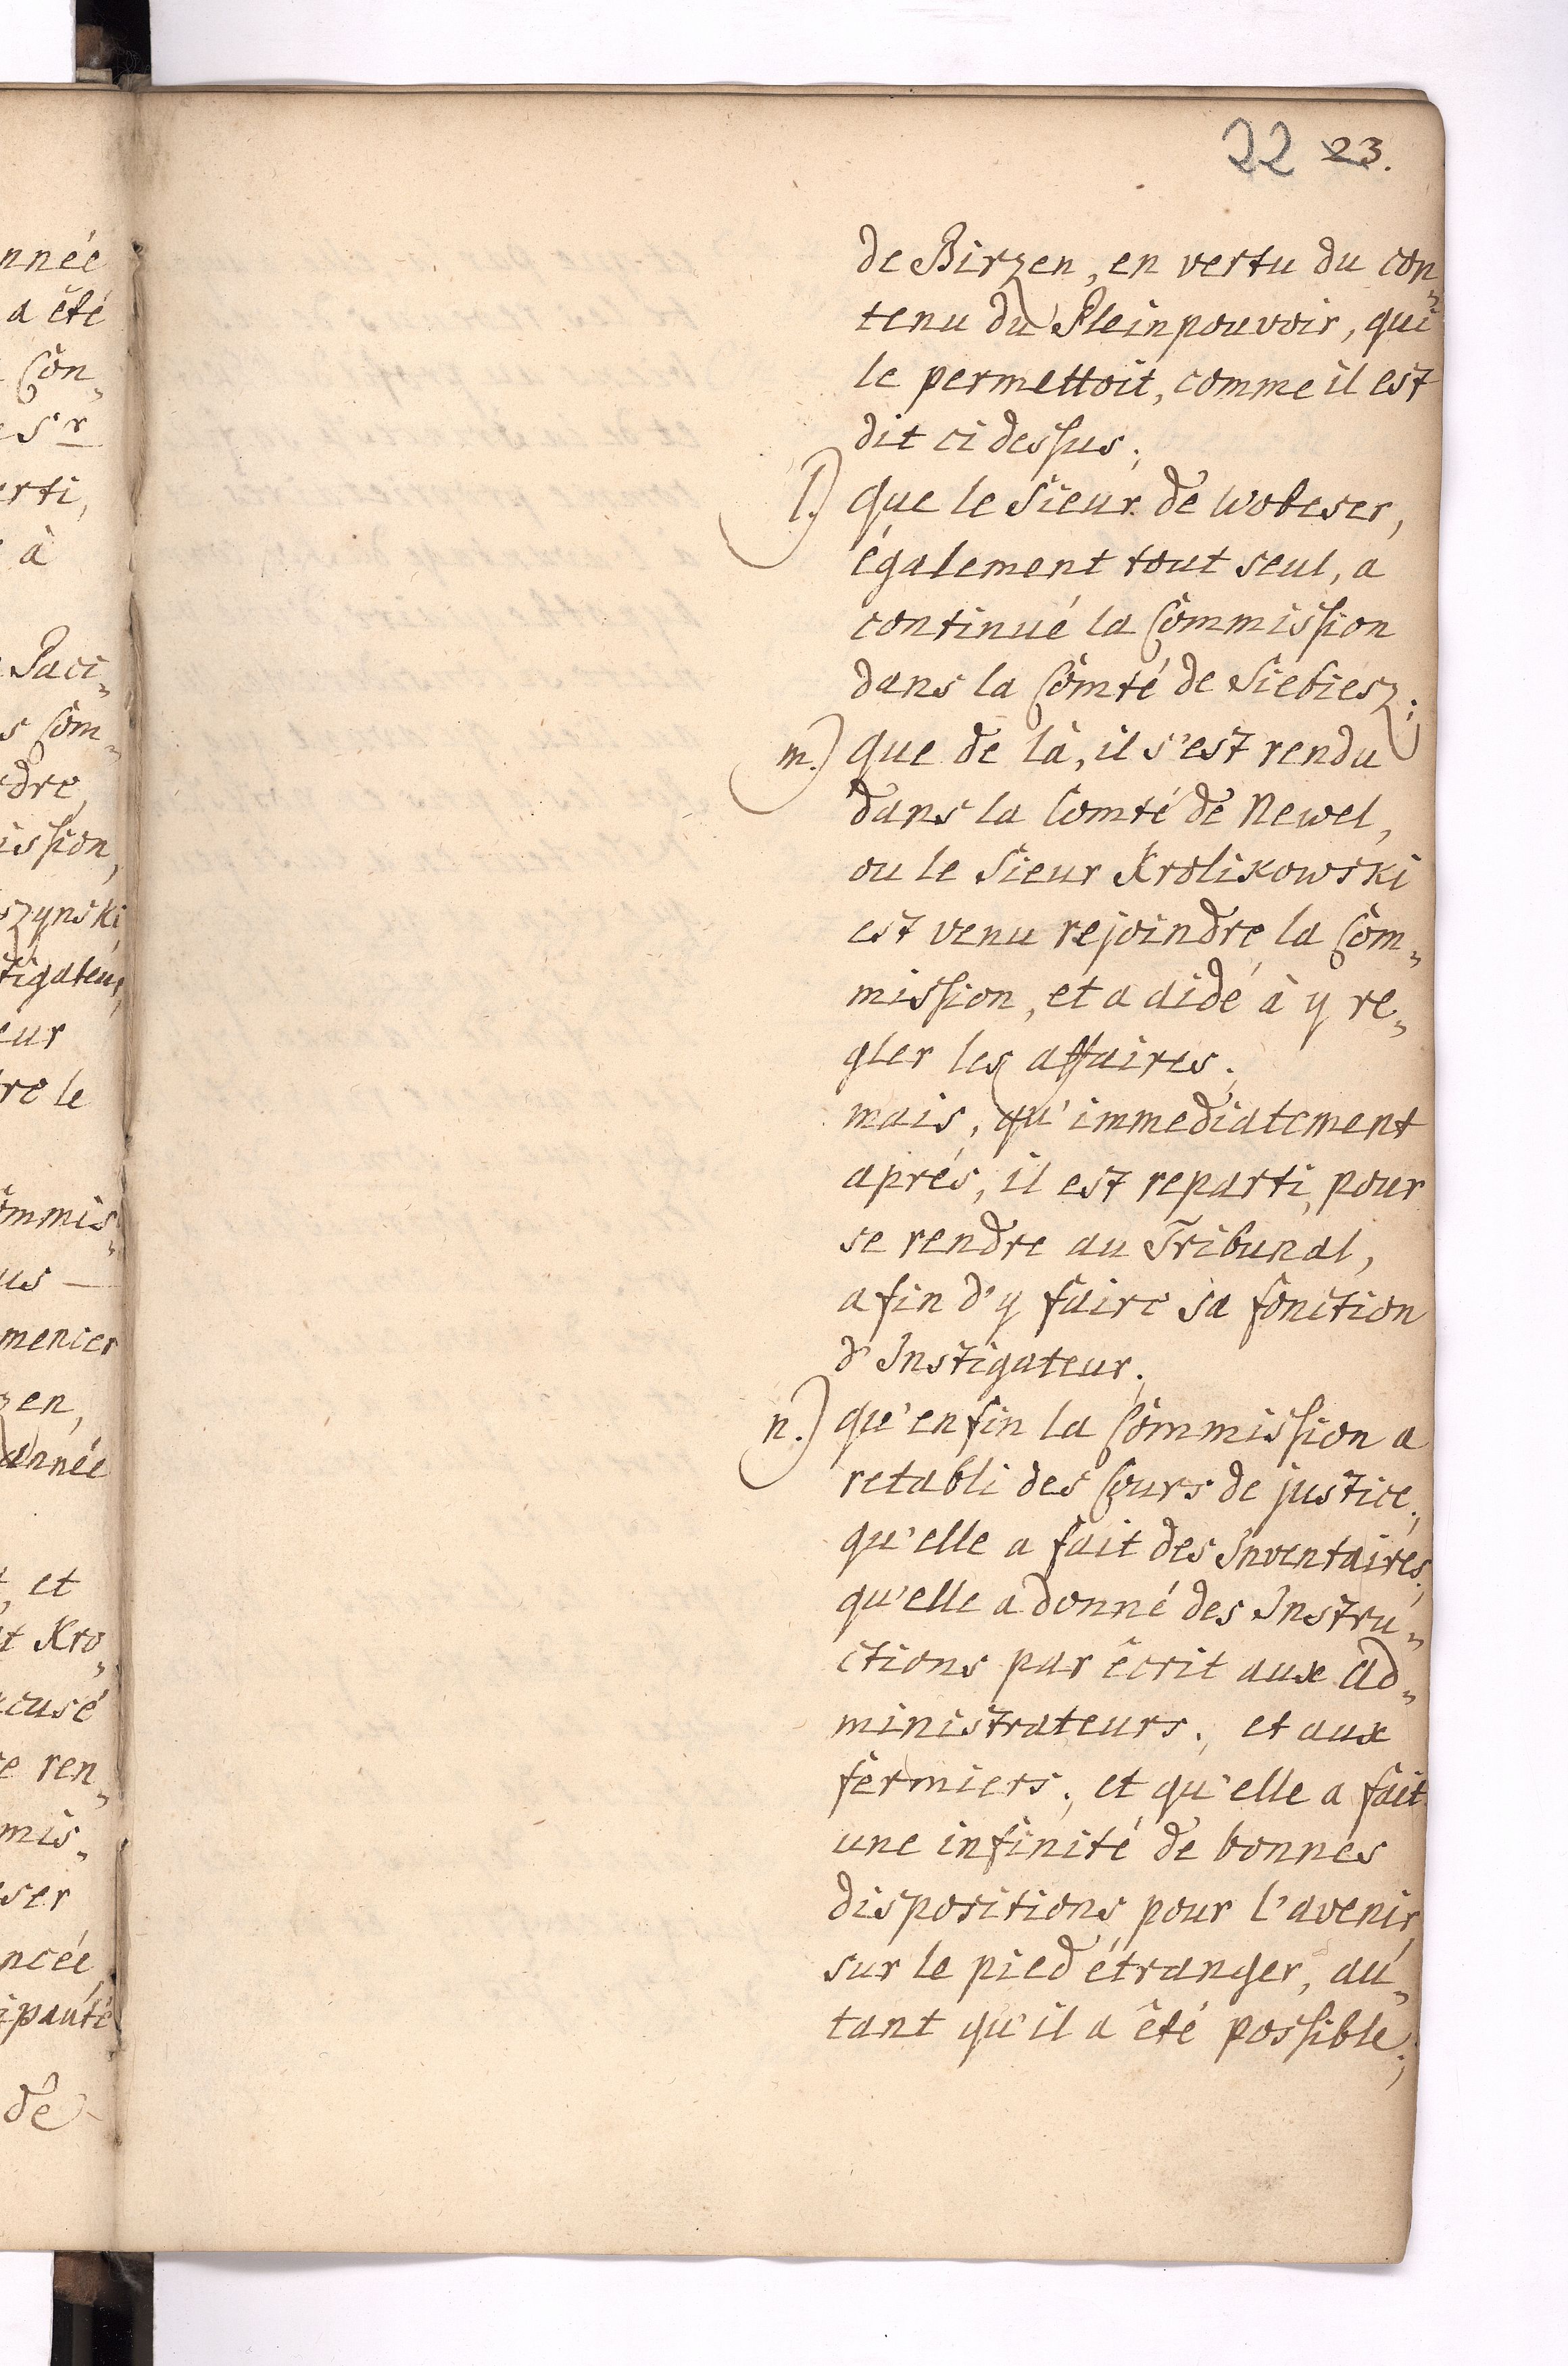 nnée
a êté
Con„
es Sr
erti,
à
Paci„
s Com„
dre,
ission,
szynski,
tigateur,
eur
re le
ommis„
us —
mencer
zen,
année
, et
t Kro„
cusé
e ren„
mis„
ser
ncée
ipauté
de
22 23.
de Birzen, en vertu du con„
tenu du Pleinpouvoir, qui
le permettoit, comme il est
dit ci dessus;
l.) que le Sieur de Wobeser,
également tout seul, a
continué la Commission
dans la Comté de Siebiesz;
m.) que de là, il s'est rendu
dans la Comté de Newel,
ou le Sieur Krolikowski
est venu rejoindre la Com„
mission, et a aidé à y re„
gler les affaires;
mais, qu'immediatement
aprés, il est reparti, pour
se rendre au Tribunal,
a fin d'y faire sa fonction
d'Instigateur;
n.) qu'enfin la Commission a
retabli des Cours de justice;
qu'elle a fait des Inventaires;
qu'elle a donné des Instru„
ctions par êcrit aux Ad„
ministrateurs; et aux
fermiers; et qu'elle a fait
une infinité de bonnes
dispositions pour l'avenir,
sur le pied étranger, au„
tant qu'il a êté possible;